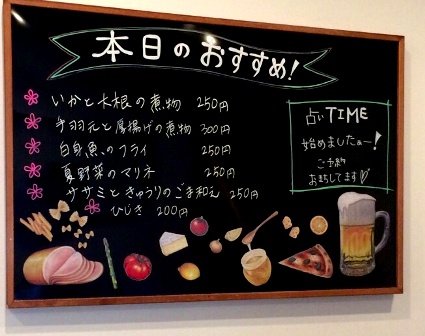 本日のおすすめ!
いかと大根の煮物 250円
手羽元と厚揚げの煮物 300円
白身魚のフライ 250円
夏野菜のマリネ 250円
ササミときゅうりのごま和え 250円
ひじき 200円
占いTIME
始めましたぁ〜!
ご予約
お待ちしてます♡